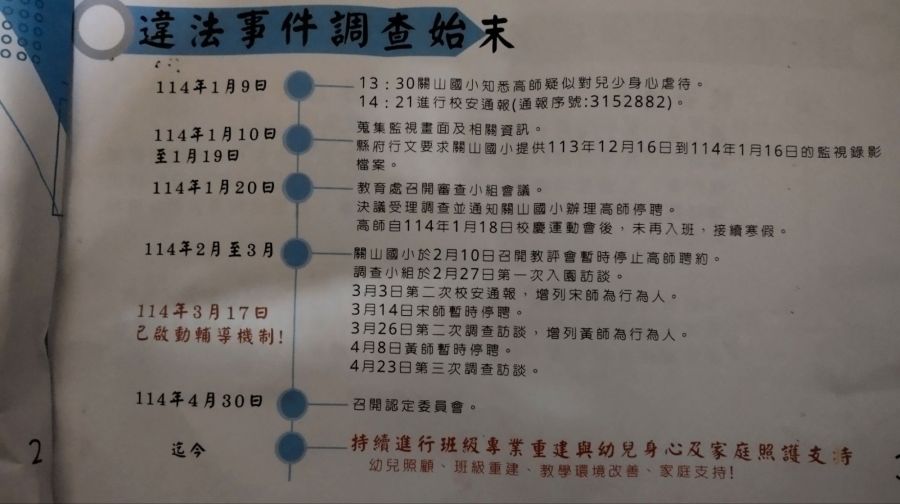 違法事件調查始末
114年1月9日
13：30關山國小知悉高師疑似對兒少身心虐待。
14：21進行校安通報(通報序號:3152882)。
114年1月10日
至1月19日
蒐集監視畫面及相關資訊。
縣府行文要求關山國小提供113年12月16日到114年1月16日的監視錄影
檔案。
114年1月20日
教育處召開審查小組會議。
決議受理調查並通知關山國小辦理高師停聘。
高師自114年1月18日校慶運動會後，未再入班，接續寒假。
114年2月至3月
關山國小於2月10日召開教評會暫時停止高師聘約。
調查小組於2月27日第一次入園訪談。
3月3日第二次校安通報，增列宋師為行為人。
3月14日宋師暫時停聘。
3月26日第二次調查訪談，增列黃師為行為人。
4月8日黃師暫時停聘。
4月23日第三次調查訪談。
114年3月17日
已啟動輔導機制!
114年4月30日
召開認定委員會。
迄今
持續進行班級專業重建與幼兒身心及家庭照護支持
幼兒照顧、班級重建、教學環境改善、家庭支持!
2